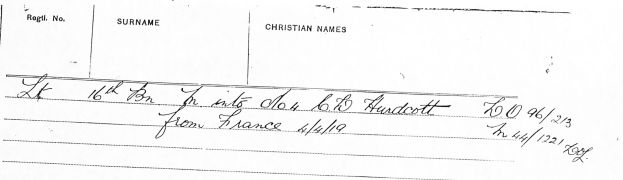 Regtl. No. SURNAME CHRISTIAN NAMES
Lt 16th Bn M into No 4 CD Hurdcott DO 96/213
from France 4/4/19 M 44/1221